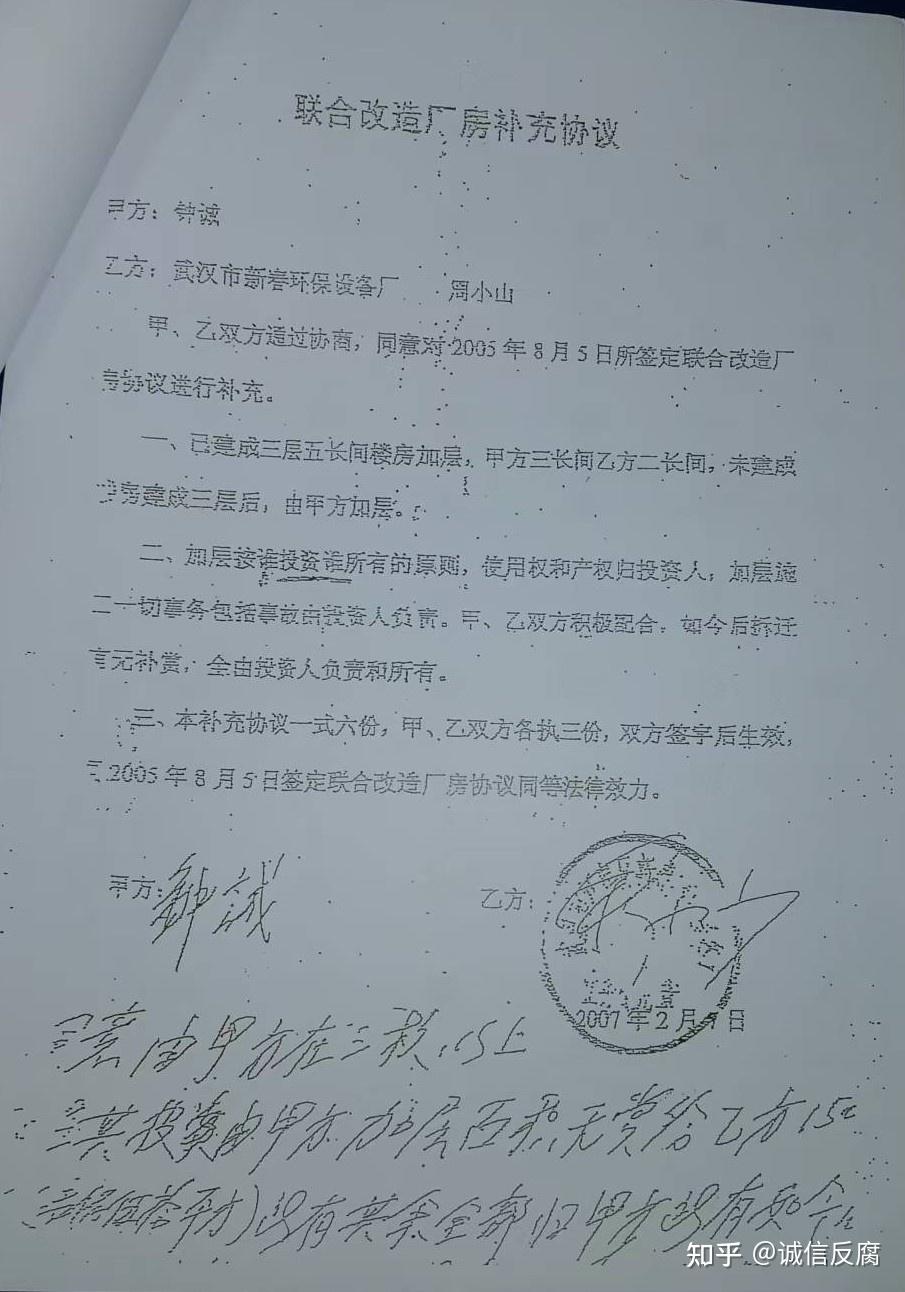 联合改造厂房补充协议
甲方：钟诚
乙方：武汉市新春环保设备厂 周小山
甲、乙双方通过协商，同意对2005年8月5日所签定联合改造厂
房协议进行补充。
一、已建成三层五长间楼房加层，甲方三长间乙方二长间，未建成
房建成三层后，由甲方加层。
二、加层按谁投资谁所有的原则，使用权和产权归投资人，加层施
工一切事务包括事故由投资人负责。甲、乙双方积极配合，如今后拆迁
有无补赏，全由投资人负责和所有。
三、本补充协议一式六份，甲、乙双方各执三份，双方签字后生效，
2005年8月5日签定联合改造厂房协议同等法律效力。
甲方：鈡诚
乙方：
2007年2月 日
同意由甲方在三
其投资由甲方加层面积无赏给乙方15
平方）所有其余全部归甲方所有如今
知乎 @诚信反腐